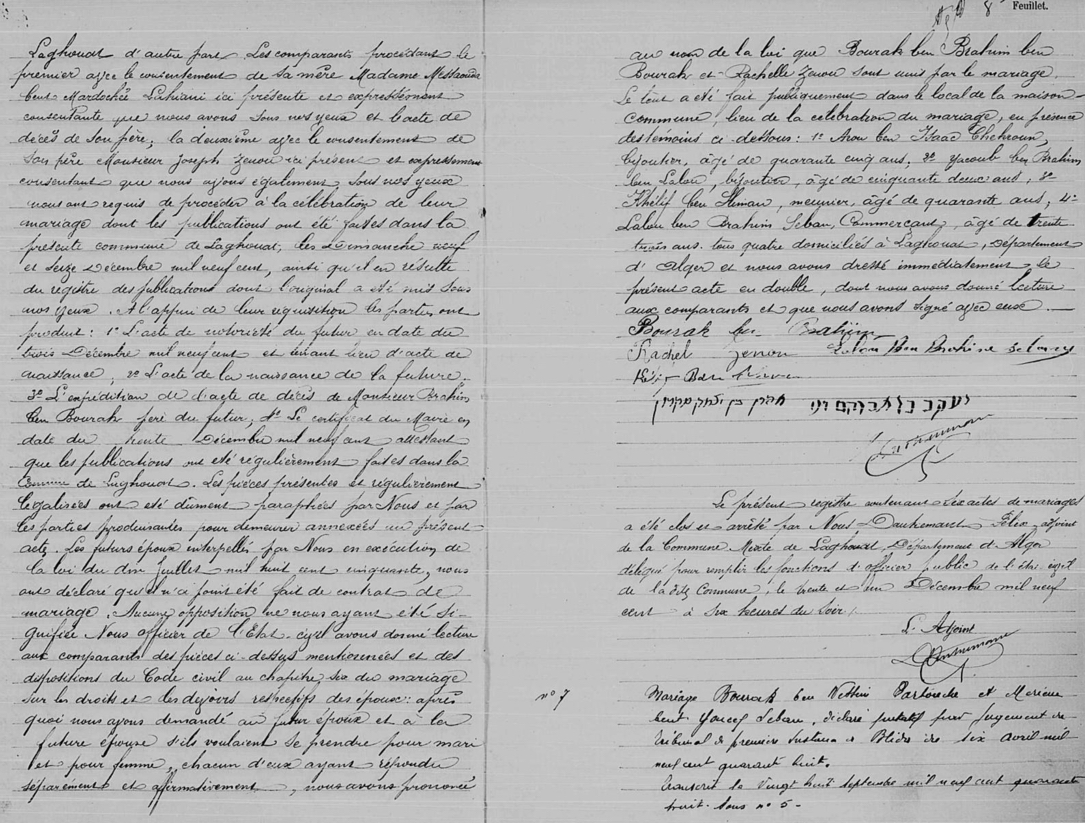 Laghouat d'autre part. Les comparants procédant le
premier avec le consentement de sa mère Madame Messaouda
bent Mardochée Lahiani ici présente et expressément
consentante que nous avons sous nos yeux et l'acte de
décès de son père, la deuxième avec le consentement de
son père Monsieur Joseph Zenou ici présent et expressément
consentant que nous avons également sous nos yeux
nous ont requis de procéder à la célébration de leur
mariage dont les publications ont été faites dans la
présente commune de Laghouat, les Dimanche neuf
et seize Décembre mil neuf cent, ainsi qu'il en résulte
du registre des publications dont l'original a été mis sous
nos yeux. A l'appui de leur réquisition les parties ont
produit : 1° L'acte de notoriété du futur en date du
trois Décembre mil neuf cent et tenant lieu d'acte de
naissance, 2° L'acte de la naissance de la future.
3° L'expédition de l'acte de décès de Monsieur Brahim
ben Bourak père du futur, 4° Le certificat du Maire en
date du trente Décembre mil neuf cent attestant
que les publications ont été régulièrement faites dans la
Commune de Laghouat. Les pièces présentes et régulièrement
légalisées ont été dûment paraphées par Nous et par
les parties produisantes pour demeurer annexées au présent
acte. Les futurs époux interpellés par Nous en exécution de
la loi du dix Juillet mil huit cent cinquante, nous
ont déclaré qu'il n'a point été fait de contrat de
mariage. Aucune opposition ne nous ayant été si-
gnifiée Nous officier de l'Etat-civil avons donné lecture
aux comparants des pièces ci-dessus mentionnées et des
dispositions du Code civil au chapitre six du mariage
sur les droits et les devoirs respectifs des époux : après
quoi nous avons demandé au futur époux et à la
future épouse s'ils voulaient se prendre pour mari
et pour femme, chacun d'eux ayant répondu
séparément et affirmativement, nous avons prononcé
8e Feuillet.
au nom de la loi que Bourak ben Brahim ben
Bourak et Rachelle Zenou sont unis par le mariage.
Le tout a été fait publiquement dans le local de la maison-
commune, lieu de la célébration du mariage, en présence
des témoins ci-dessous : 1° Aron ben Isaac Chekroun,
bijoutier, âgé de quarante cinq ans, 2° Yacoub ben Brahim
ben Lalou, bijoutier, âgé de cinquante deux ans, 3°
Khélif ben Himan, meunier, âgé de quarante ans, 4°
Lalou ben Brahim Seban, Commerçant, âgé de trente
trois ans. tous quatre domiciliés à Laghouat, Département
d'Alger et nous avons dressé immédiatement le
présent acte en double, dont nous avons donné lecture
aux comparants et que nous avons signé avec eux.
Bourak ben Brahim
Rachel Zenou Lalou Ben Brahim
Ben
Le présent registre contenant les actes de mariages
a été clos et arrêté par Nous Dankemant Félix adjoint
de la Commune Mixte de Laghouat, Département d'Alger
délégué pour remplir les fonctions d'officier public de l'état civil
de la dite Commune, le trente et un Décembre mil neuf
cent à six heures du soir.
L'Adjoint
n° 7
Mariage Bourak ben Nessim Partouche et Meriem
bent Youcef Seban, déclaré putatif par jugement du
Tribunal de première Instance de Blida du six avril mil
neuf cent quarante huit.
Transcrit le Vingt huit septembre mil neuf cent quarante
huit. Sous n° 5-